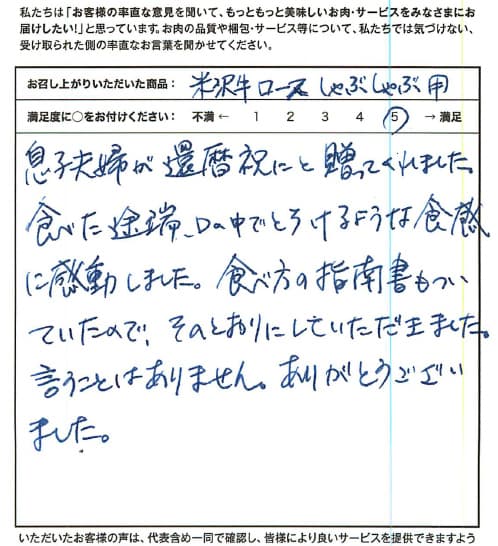 私たちは「お客様の率直な意見を聞いて、もっともっと美味しいお肉・サービスをみなさまにお
届けしたい!」と思っています。お肉の品質や梱包・サービス等について、私たちでは気づけない、
受け取られた側の率直なお言葉を聞かせてください。
お召し上がりいただいた商品: 米沢牛ロース しゃぶしゃぶ用
満足度に○をお付けください: 不満 ← 1 2 3 4 5 → 満足
息子夫婦が還暦祝にと贈ってくれました。
食べた途端、口の中でとろけるような食感
に感動しました。食べ方の指南書もつい
ていたので、そのとおりにしていただきました。
言うことはありません。ありがとうござい
ました。
いただいたお客様の声は、代表含め一同で確認し、皆様により良いサービスを提供できますよう